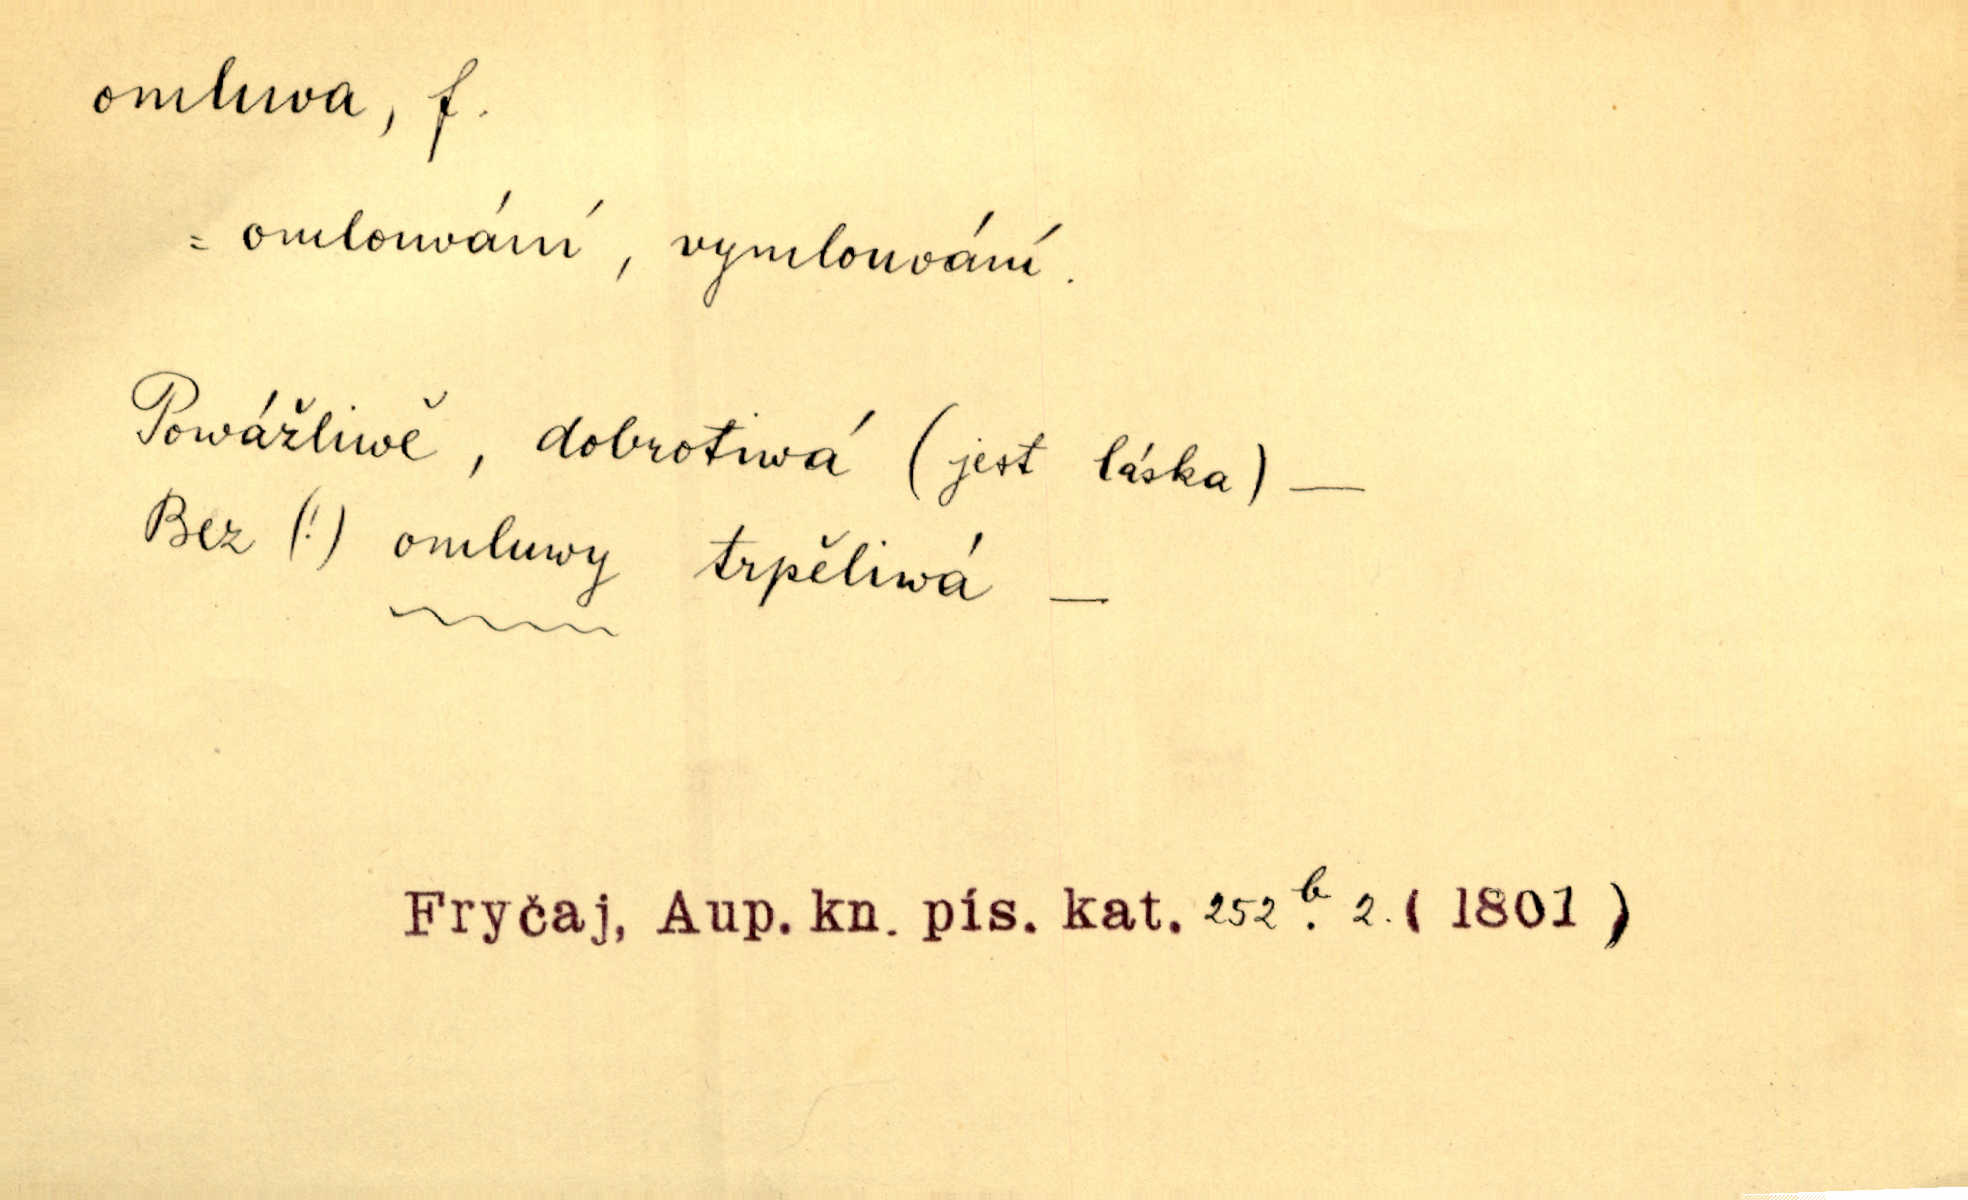 omluwa, f.
= omlouvání, vymlouvání.
Powážliwě, dobrotiwá (jest láska) —
Bez (!) omluwy trpěliwá —
Fryčaj, Aup. kn. pís. kat. 252 b. 2. (1801)